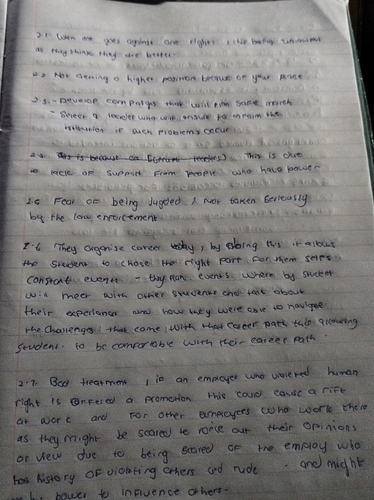 2.1 When one goes against one rights, like being
as they think they are better.
2.2 Not getting a higher position because of your race
2.3 - Develop campaigns that will run safe march
- Select a leader who will ensure to inform the
institution if such problems occur
2.4 This is because of This is due
to lack of support from people who have power
2.5 Fear of being jugded / not taken seriously
by the law enforcement
2.6 They organise career today, by doing this it allows
the student to chose the right part for them selfs
Constant events - they run events where by student
will meet with other students and talk about
their experiance and how they were able to navigae
the challenges that come with that career path this allowing
student to be comfortable with their career path.
2.7. Bad treatment, if an employee who violeted human
right is offered a promotion this could cause a rift
at work and for other employees who work there
as they might be scared to voice out their opinions
or view due to being scared of the employ who
has history of violating others and rude and might
power to influence others.